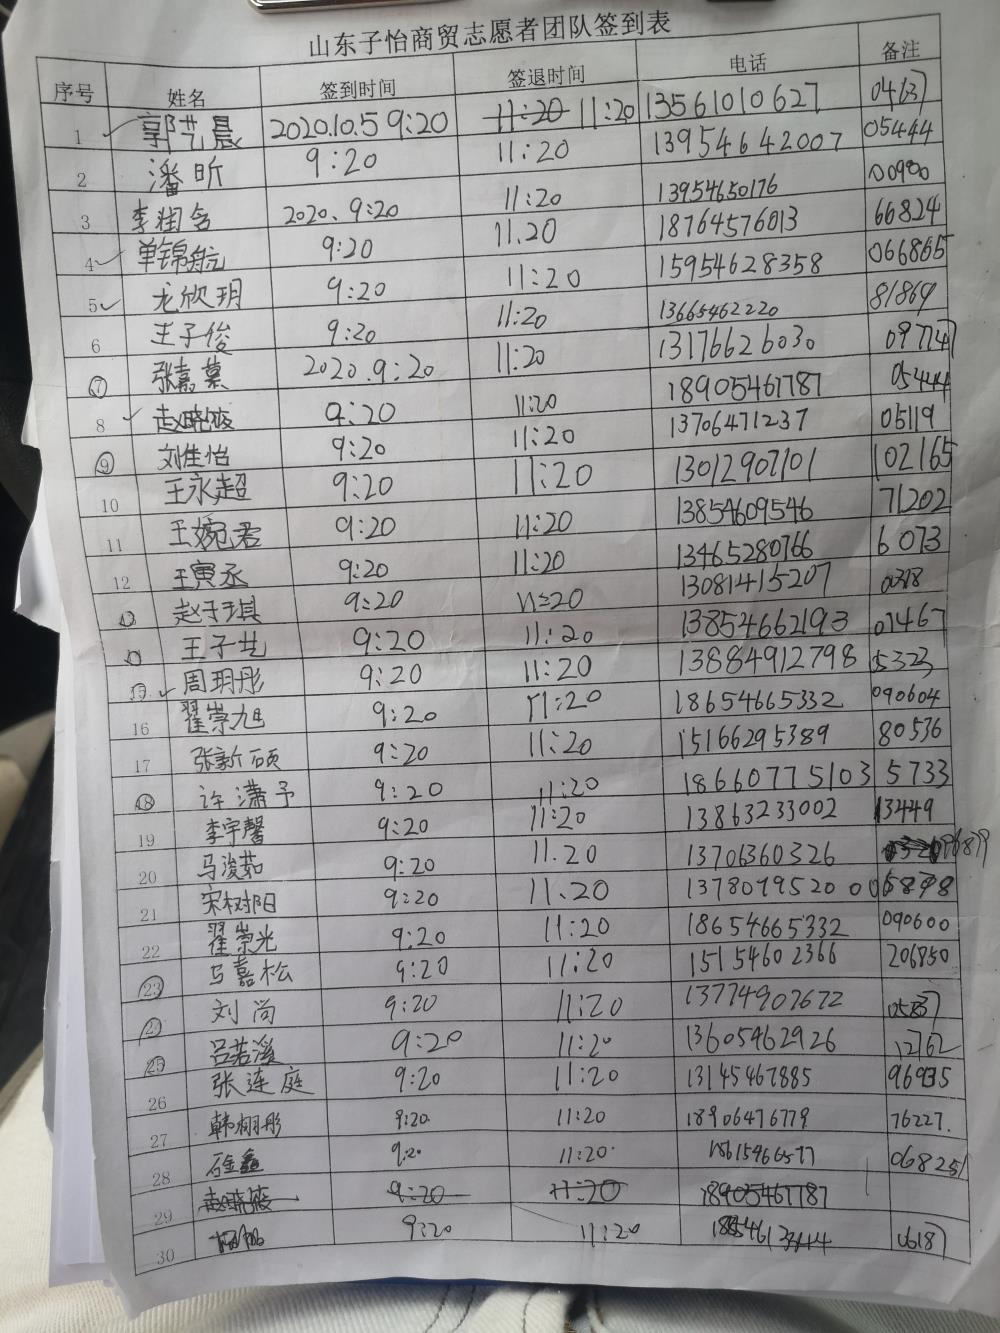 山东子怡商贸志愿者团队签到表
序号 姓名 签到时间 签退时间 电话 备注
1 郭艺晨 2020.10.5 9:20 11:20 11:20 13561010627 04637
2 潘昕 9:20 11:20 13954642007 05444
3 李润含 2020、9:20 11:20 13954650176 00980
4 单锦航 9:20 11.20 18764576013 66824
5 龙欣玥 9:20 11:20 15954628358 066865
6 王子俊 9:20 11:20 13665462220 81869
7 张嘉 2020.9:20 11:20 13176626030 09774
8 赵晓筱 9:20 11:20 18905461787 05444
9 刘佳怡 9:20 11:20 13706471237 05119
10 王永超 9:20 11:20 13012907101 102165
11 王婉君 9:20 11:20 13854609546 71202
12 王寅丞 9:20 11:20 13465280766 6073
13 赵子琪 9:20 11:20 13081415207
14 王子艺 9:20 11:20 13854662193 07467
15 周玥彤 9:20 11:20 13884912798 5323
16 翟崇旭 9:20 11:20 18654665332 090604
17 张新硕 9:20 11:20 15166295389 80536
18 许潇予 9:20 11:20 18660775103 5733
19 李宇馨 9:20 11:20 13863233002 13449
20 马浚茹 9:20 11.20 13706360326
21 宋树阳 9:20 11.20 13780795200
22 翟崇光 9:20 11:20 18654665332 090600
23 马嘉松 9:20 11:20 15154602366 206850
24 刘尚 9:20 11:20 13774907672 05837
25 吕若溪 9:20 11:20 13605462926 12762
26 张连庭 9:20 11:20 13145467885 96935
27 韩栩彤 9:20 11:20 18906476779 76227.
28 石金鑫 9:20 11:20 068251
29 赵晓筱 9:20 11:20 18905461787
30 9:20 11:20 06187